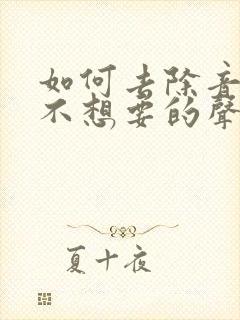 如何去除音
不想要的聲
夏十夜